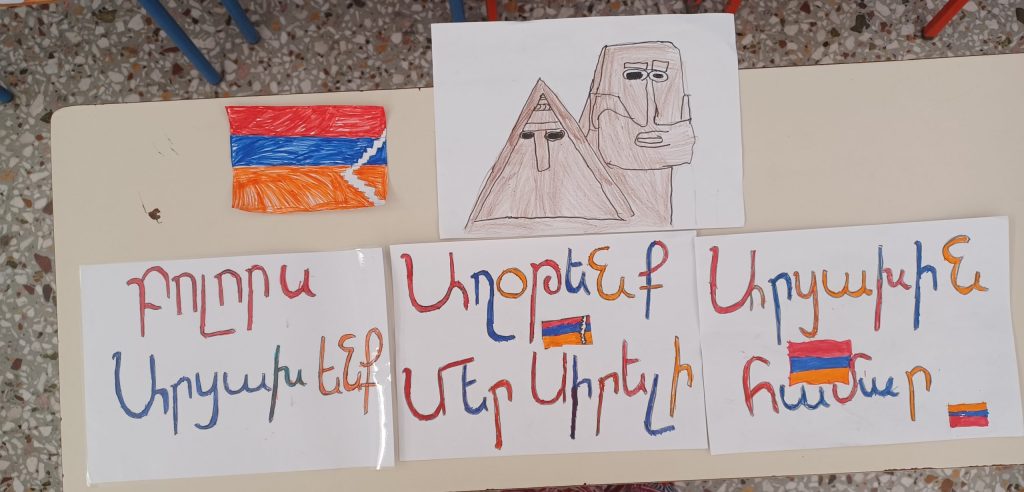 Բոլորս
Արցախ ենք
Աղօթենք
Մեր Սիրելի
Արցախին
համար